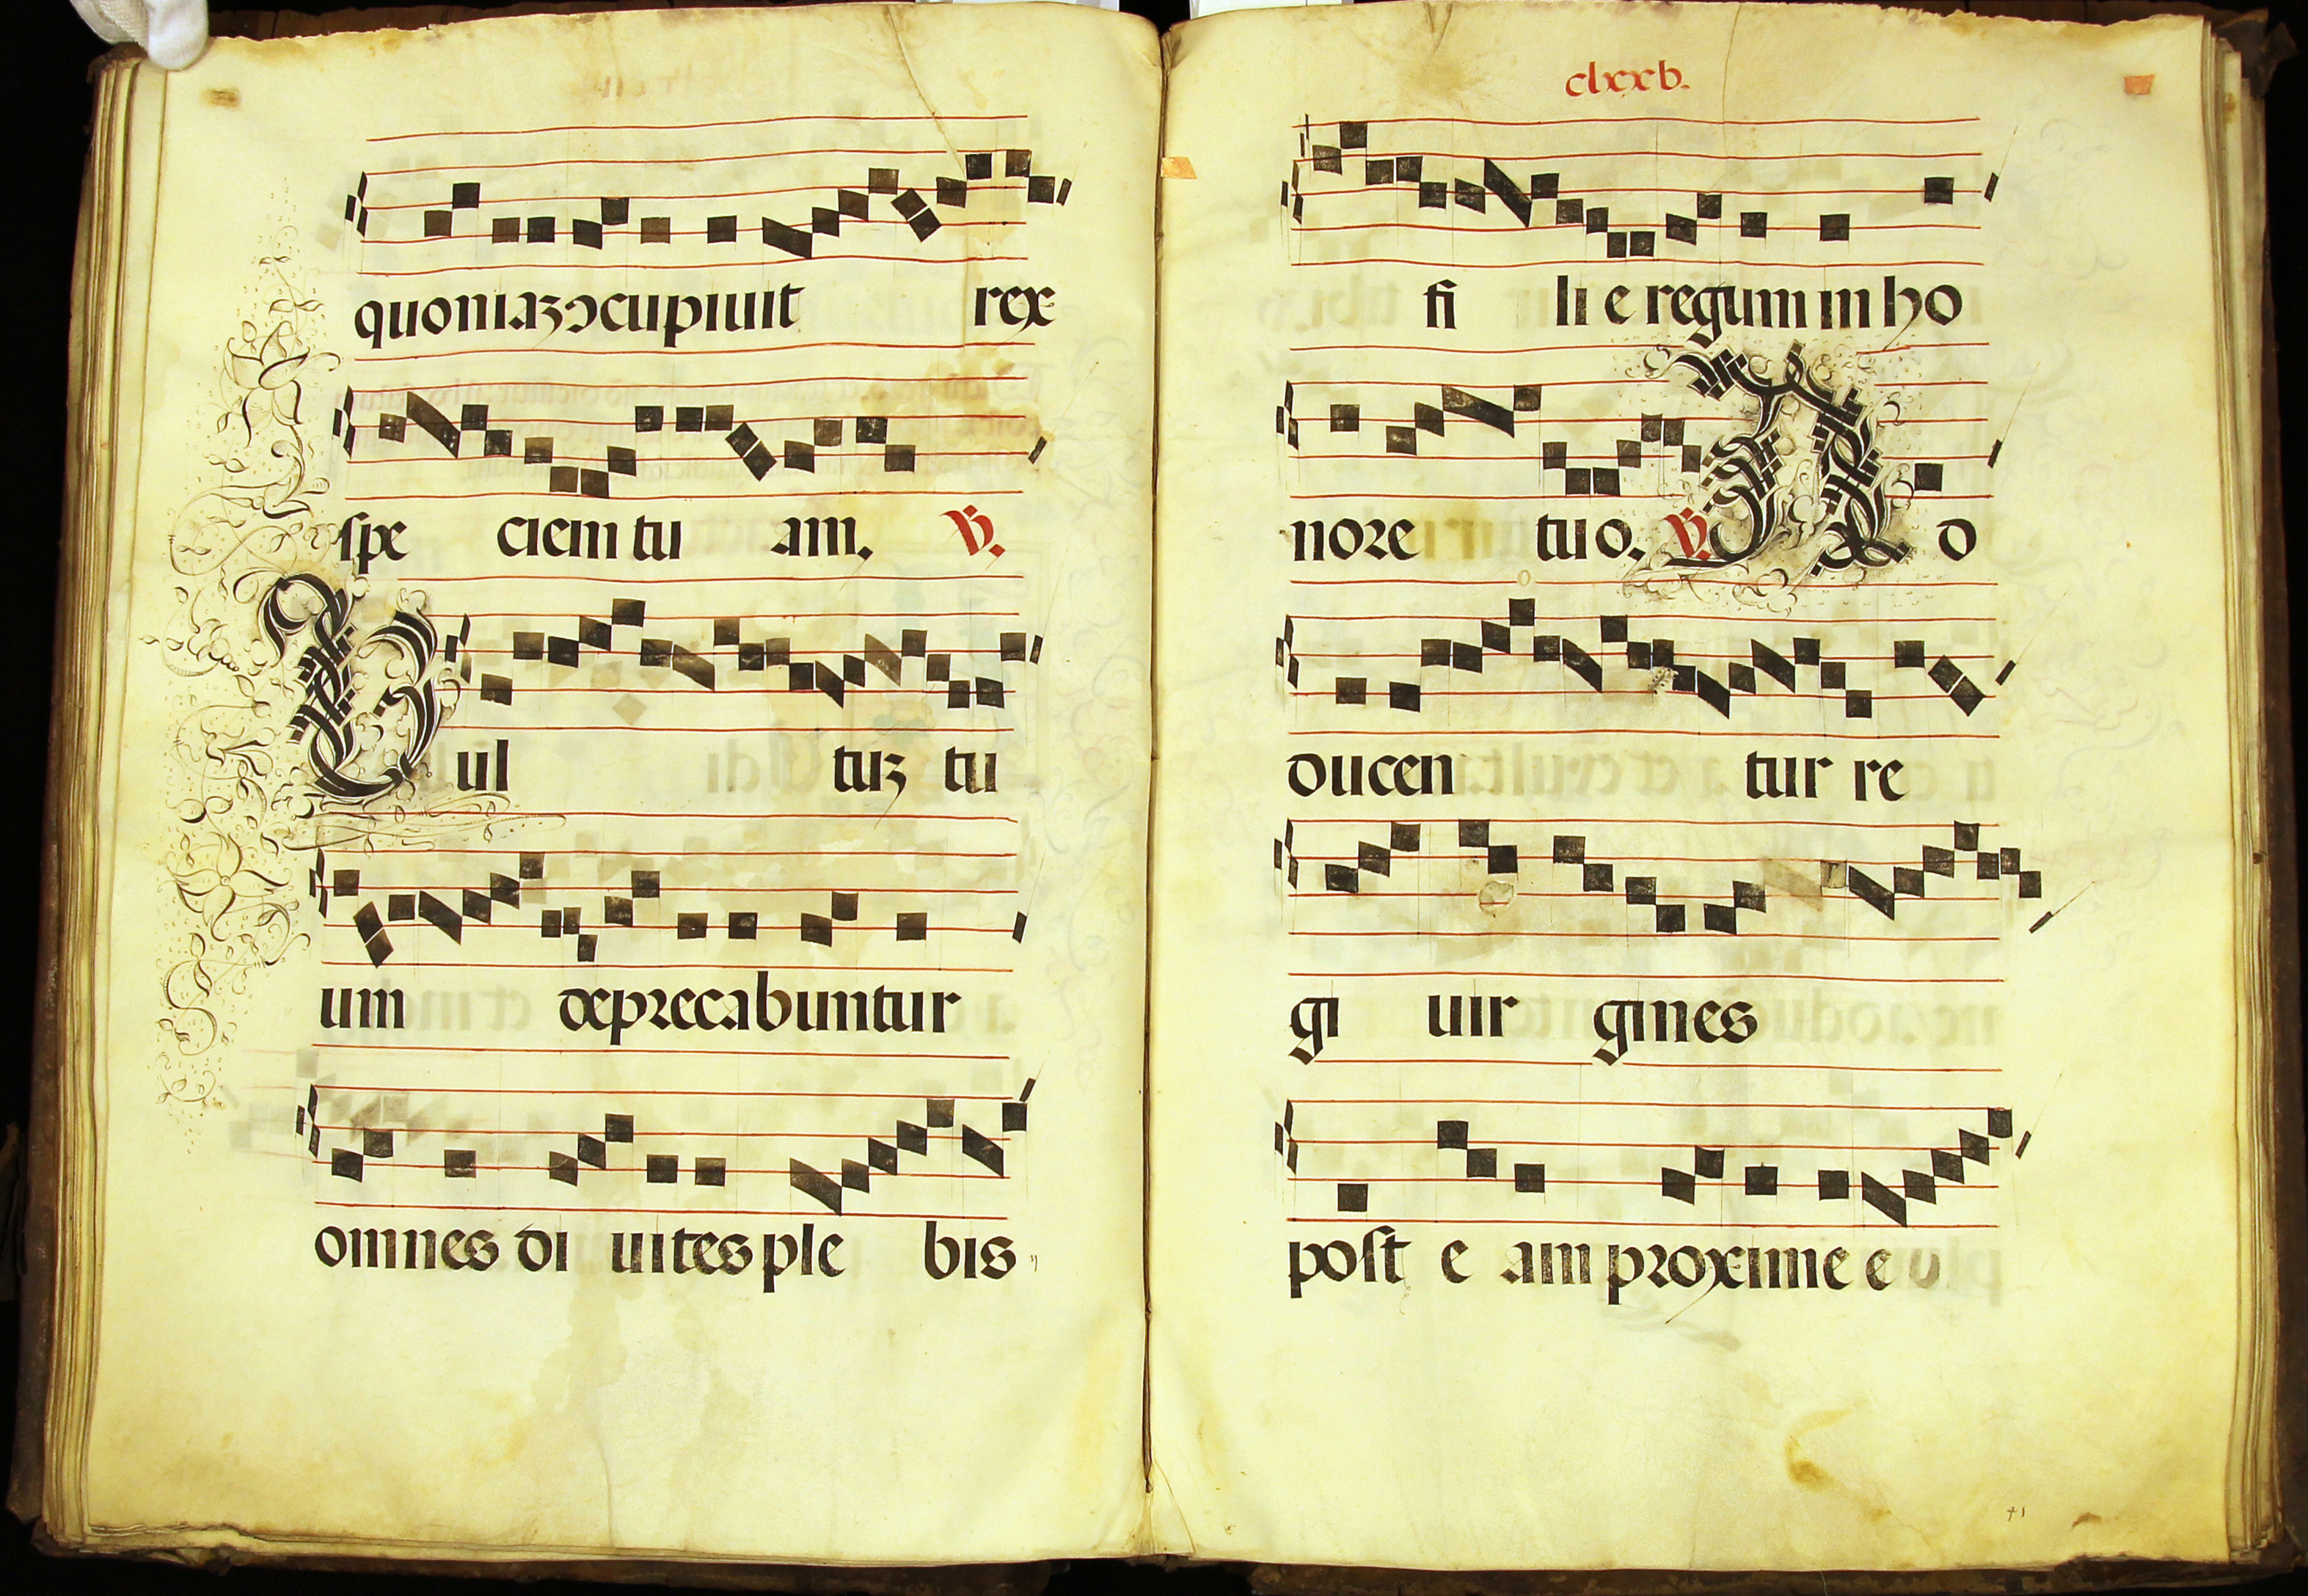 quoniaꝫ ↄcupiuit rex
spe ciem tu am. ℣.
Vul tuꝫ tu
um deprecabuntur
omnes di uites ple bis
clxxv.
fi li e regum in ho
nore tuo. ℣. A d
ducen tur re
gi uir gines
post e am proxime e